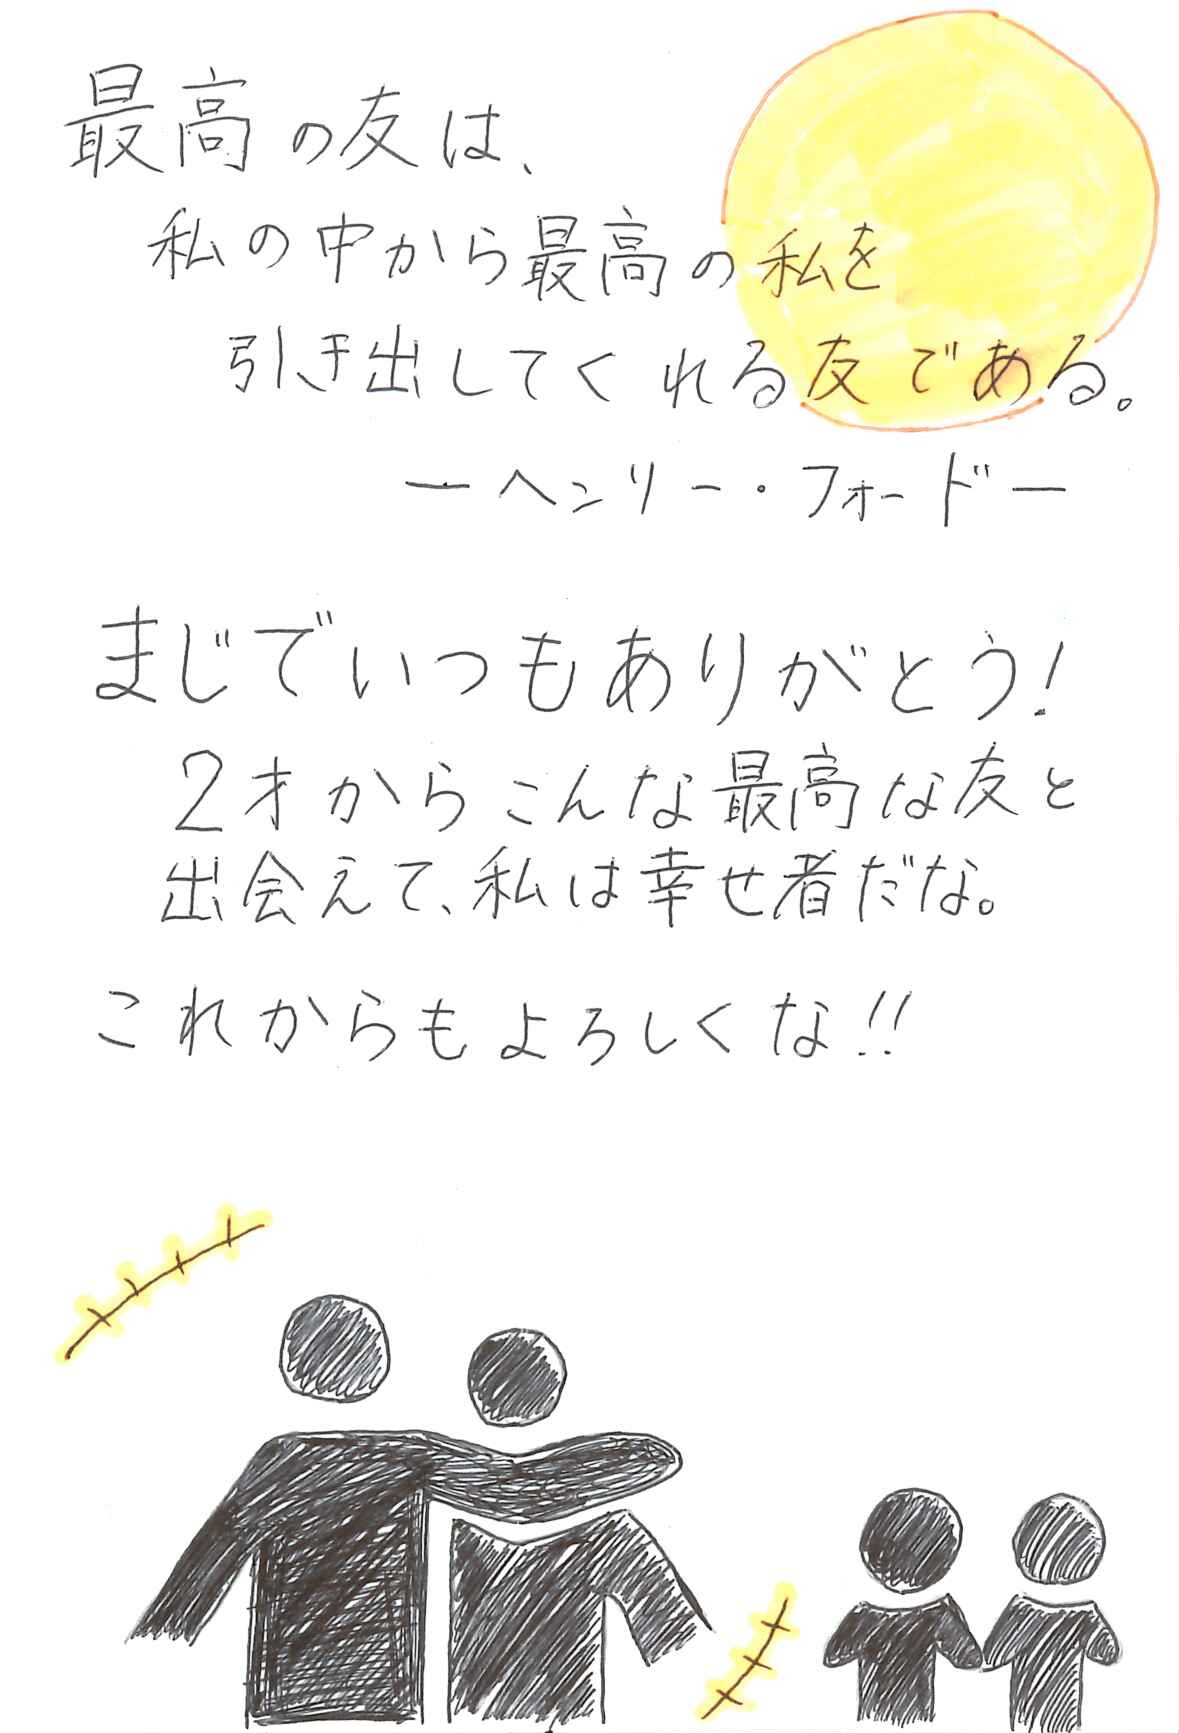 最高の友は、
私の中から最高の私を
引き出してくれる友である。
ーヘンリー・フォードー
まじでいつもありがとう!
2才からこんな最高な友と
出会えて、私は幸せ者だな。
これからもよろしくな!!